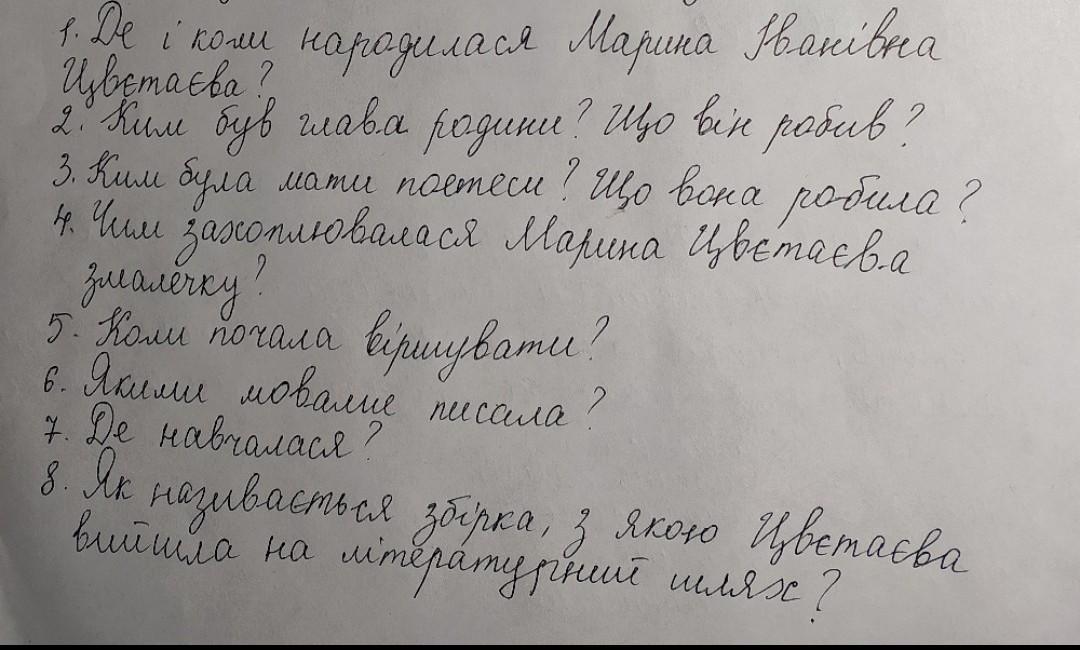 1. Де і коли народилася Марина Іванівна
Цвєтаєва?
2. Ким був глава родини? Що він робив?
3. Ким була мати поетеси? Що вона робила?
4. Чим захоплювалася Марина Цвєтаєва
змалечку?
5. Коли почала віршувати?
6. Якими мовами писала?
7. Де навчалася?
8. Як називається збірка, з якою Цвєтаєва
вийшла на літературний шлях?